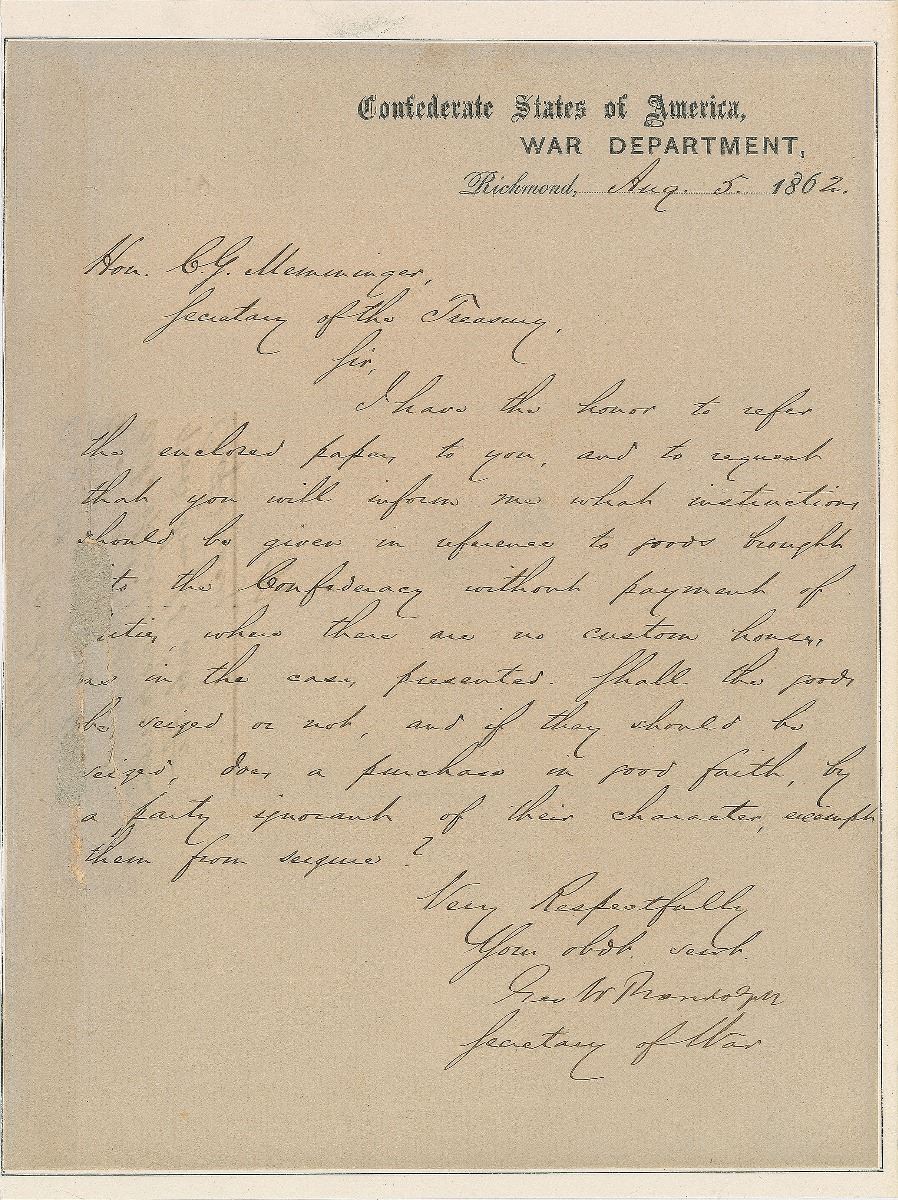 Confederate States of America,
WAR DEPARTMENT,
Richmond, Aug. 5. 1862.
Hon. C.G. Memminger,
Secretary of the Treasury,
Sir,
I have the honor to refer
the enclosed papers to you, and to request
that you will inform me what instructions
should be given in reference to goods brought
to the Confederacy without payment of
uties, where there are no custom houses,
as in the cases presented. Shall the goods
be seized or not, and if they should be
seized, does a purchase in good faith, by
a party ignorant of their character, exempt
them from seizure?
Very Respectfully
Your obdt. servt.
Geo W Randolph
Secretary of War